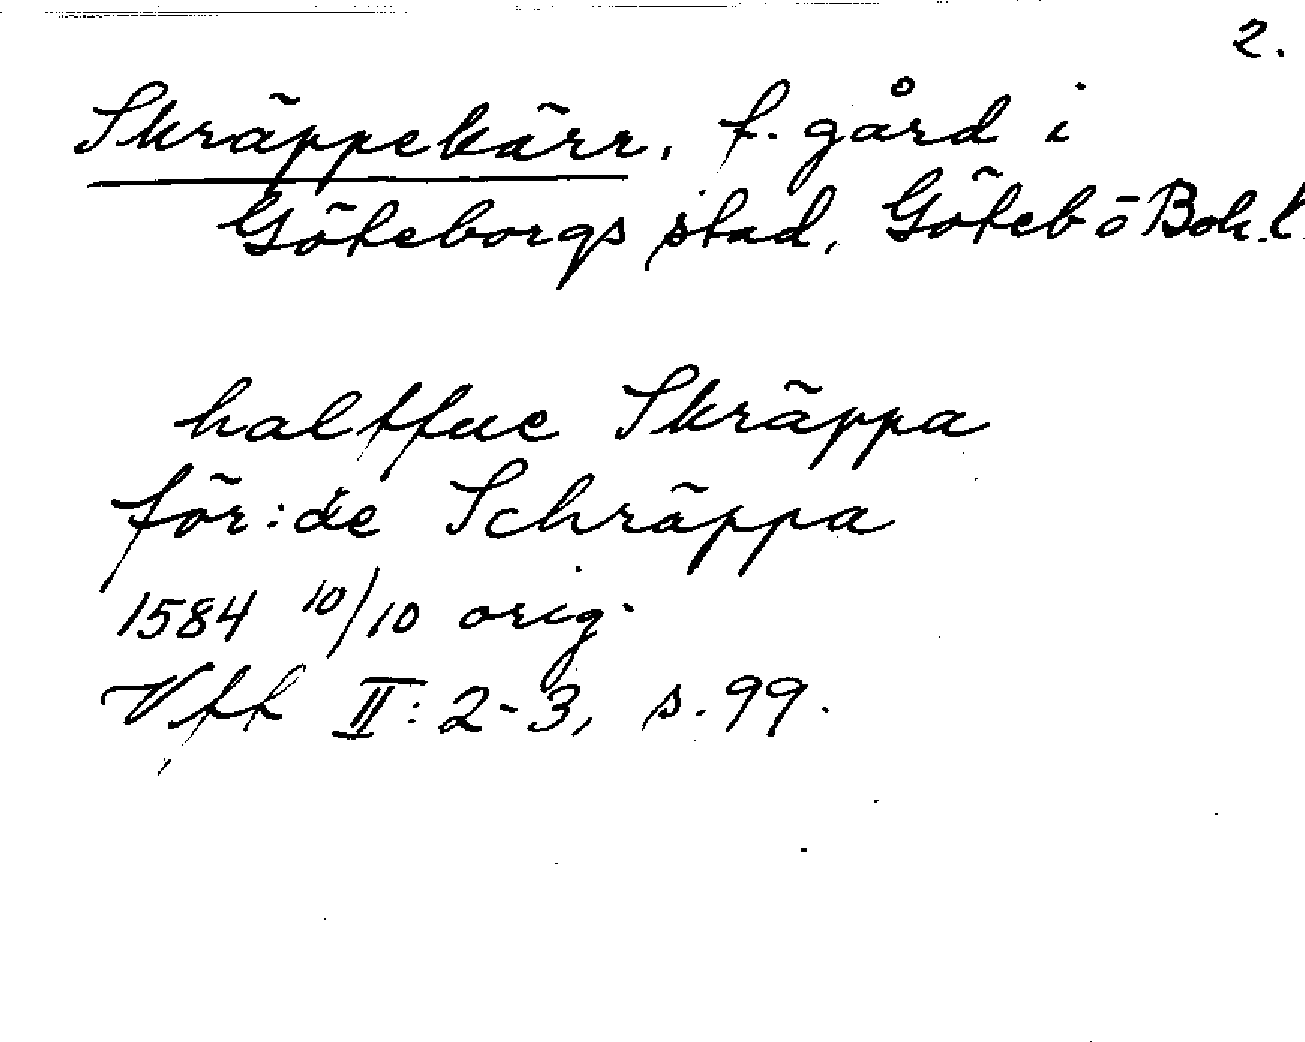 2.
Skräppekärr, f. gård i
Göteborgs stad, Göteb ö Boh.l
halffue Skräppa
för:de Schräppa
1584 10/10 orig.
Vff II: 2-3, s. 99.